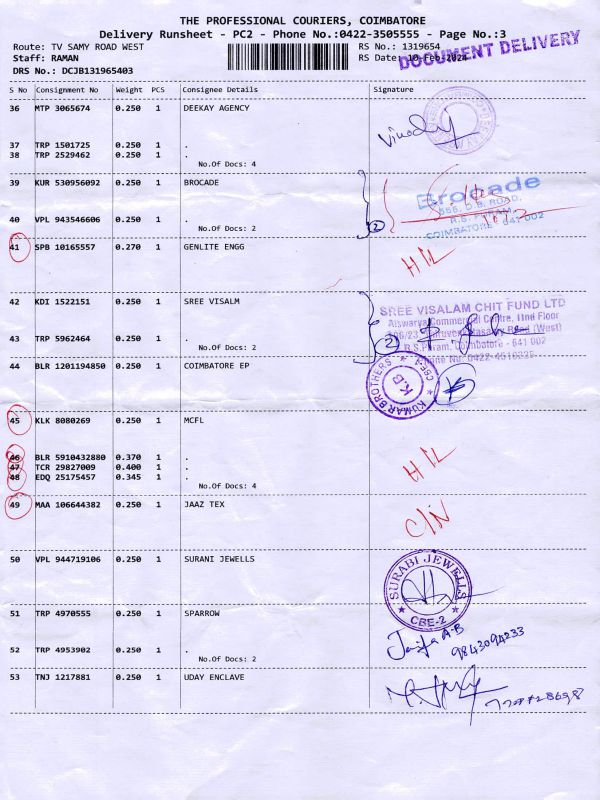 THE PROFESSIONAL COURIERS, COIMBATORE
Delivery Runsheet - PC2 - Phone No.:0422-3505555 - Page No.:3
Route: TV SAMY ROAD WEST RS No.: 1319654
Staff: RAMAN RS Date: 10-Feb-2024
DOCUMENT DELIVERY
DRS No.: DCJB131965403
S No Consignment No Weight PCS Consignee Details Signature
36 MTP 3065674 0.250 1 DEEKAY AGENCY
37 TRP 1501725 0.250 1 .
38 TRP 2529462 0.250 1 .
No.Of Docs: 4
39 KUR 530956092 0.250 1 BROCADE
Brocade
R.S. PURAM,
COIMBATORE - 641 002
40 VPL 943546606 0.250 1 .
No.Of Docs: 2
2
41 SPB 10165557 0.270 1 GENLITE ENGG
H/L
42 KDI 1522151 0.250 1 SREE VISALM
SREE VISALAM CHIT FUND LTD
Aiswarya Commercial Centre, IInd Floor
(West)
R.S.Puram, Coimbatore - 641 002
43 TRP 5962464 0.250 1 .
No.Of Docs: 2
2
44 BLR 1201194850 0.250 1 COIMBATORE EP
KUMAR BROTHERS CBE-2
K.B
45 KLK 8080269 0.250 1 MCFL
46 BLR 5910432880 0.370 1 .
47 TCR 29827009 0.400 1 .
48 EDQ 25175457 0.345 1 .
No.Of Docs: 4
H/L
49 MAA 106644382 0.250 1 JAAZ TEX
C/N
50 VPL 944719106 0.250 1 SURANI JEWELLS
SURABI JEWELLS
CBE-2
51 TRP 4970555 0.250 1 SPARROW
9843094233
52 TRP 4953902 0.250 1 .
No.Of Docs: 2
53 TNJ 1217881 0.250 1 UDAY ENCLAVE